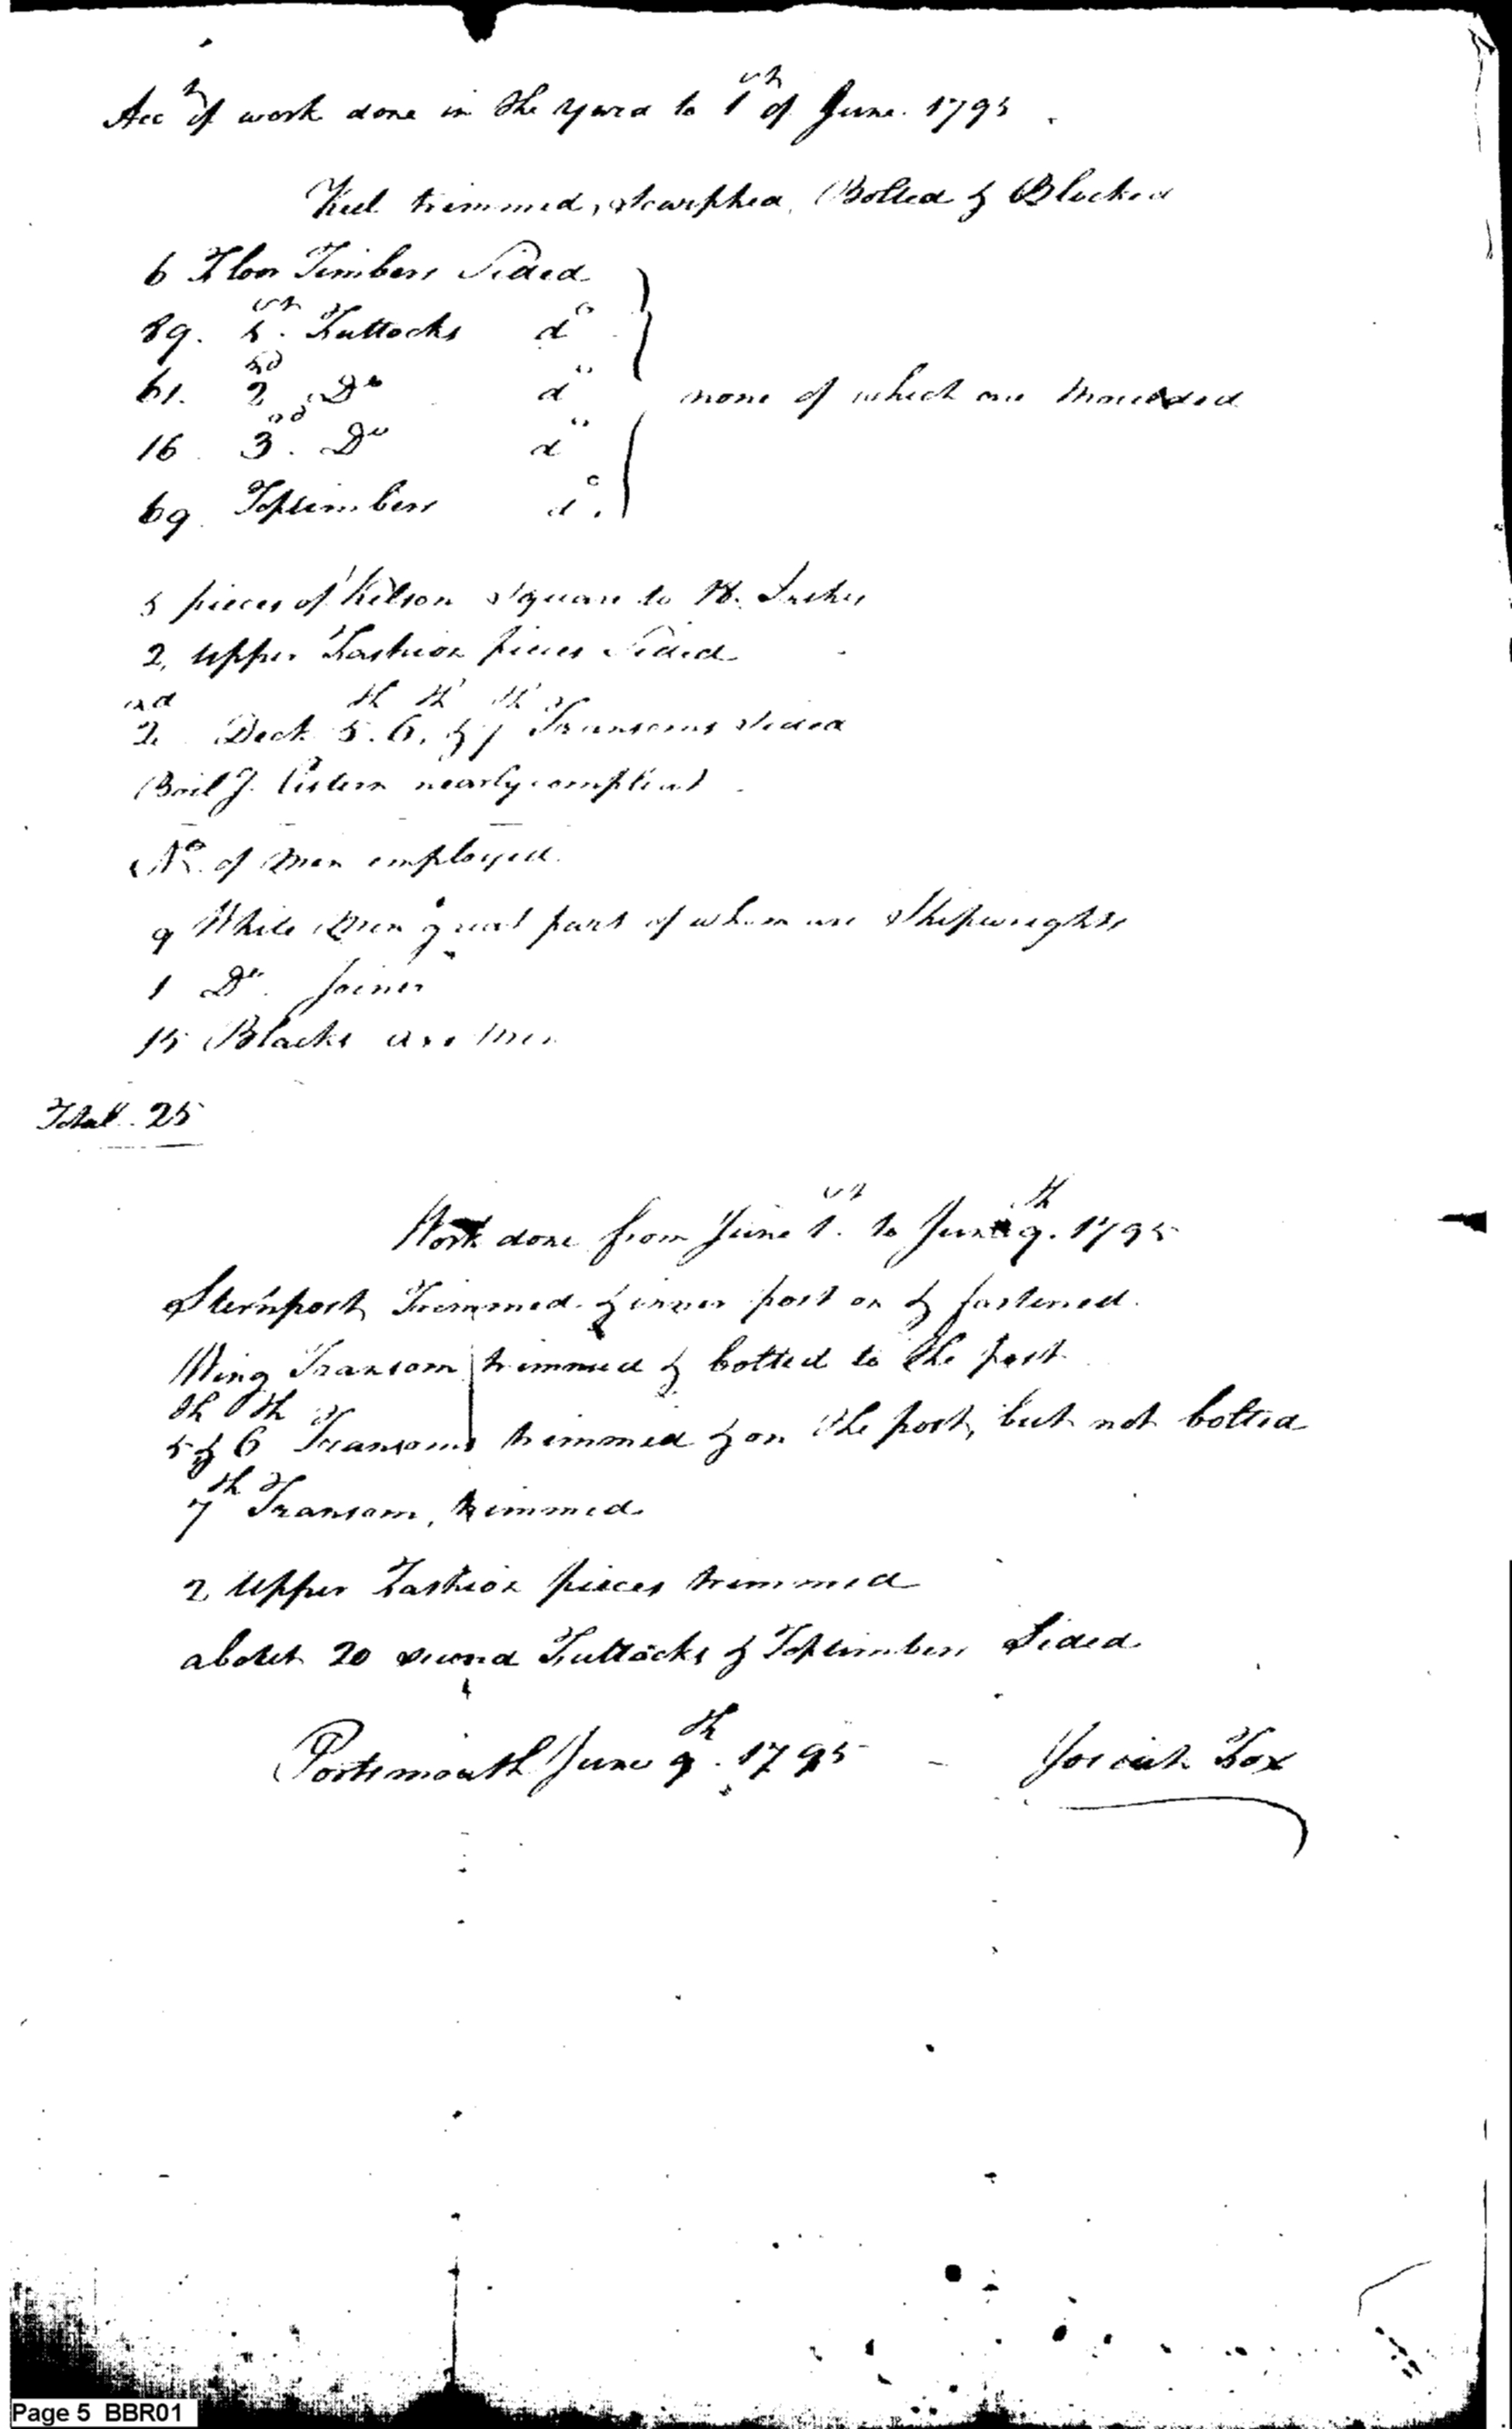 Acct of work done in the Yard to 1st of June. 1795.
Keel trimmed, scarphed, Bolted & Blocked
6 Floor Timbers Sided
89. 1st. Futtocks do
61. 2nd Do do
none of which are moulded
16. 3rd. Do do
69. Toptimbers do.
5 pieces of Kelson square to 18. Inches
2, Upper Fashion pieces Sided
2nd Deck 5th. 6th, & 7th Transoms sided
Boilg. Cistern nearly compleat
No. of Men employed.
9 White Men great part of whom are Shipwrights
1 Do. Joiner
15 Blacks Axe Men
Total. 25
Work done from June 1st. to June 9th. 1795
Sternpost, Trimmed & inner post on & fastened.
Wing Transom trimmed & bolted to the post
5th & 6th Transoms trimmed & on the post, but not bolted
7th Transom, trimmed
2 Upper Fashion pieces trimmed
about 20 second Futtocks & Toptimbers Sided
Portsmouth June 9th. 1795 - Josiah Fox
Page 5 BBR01